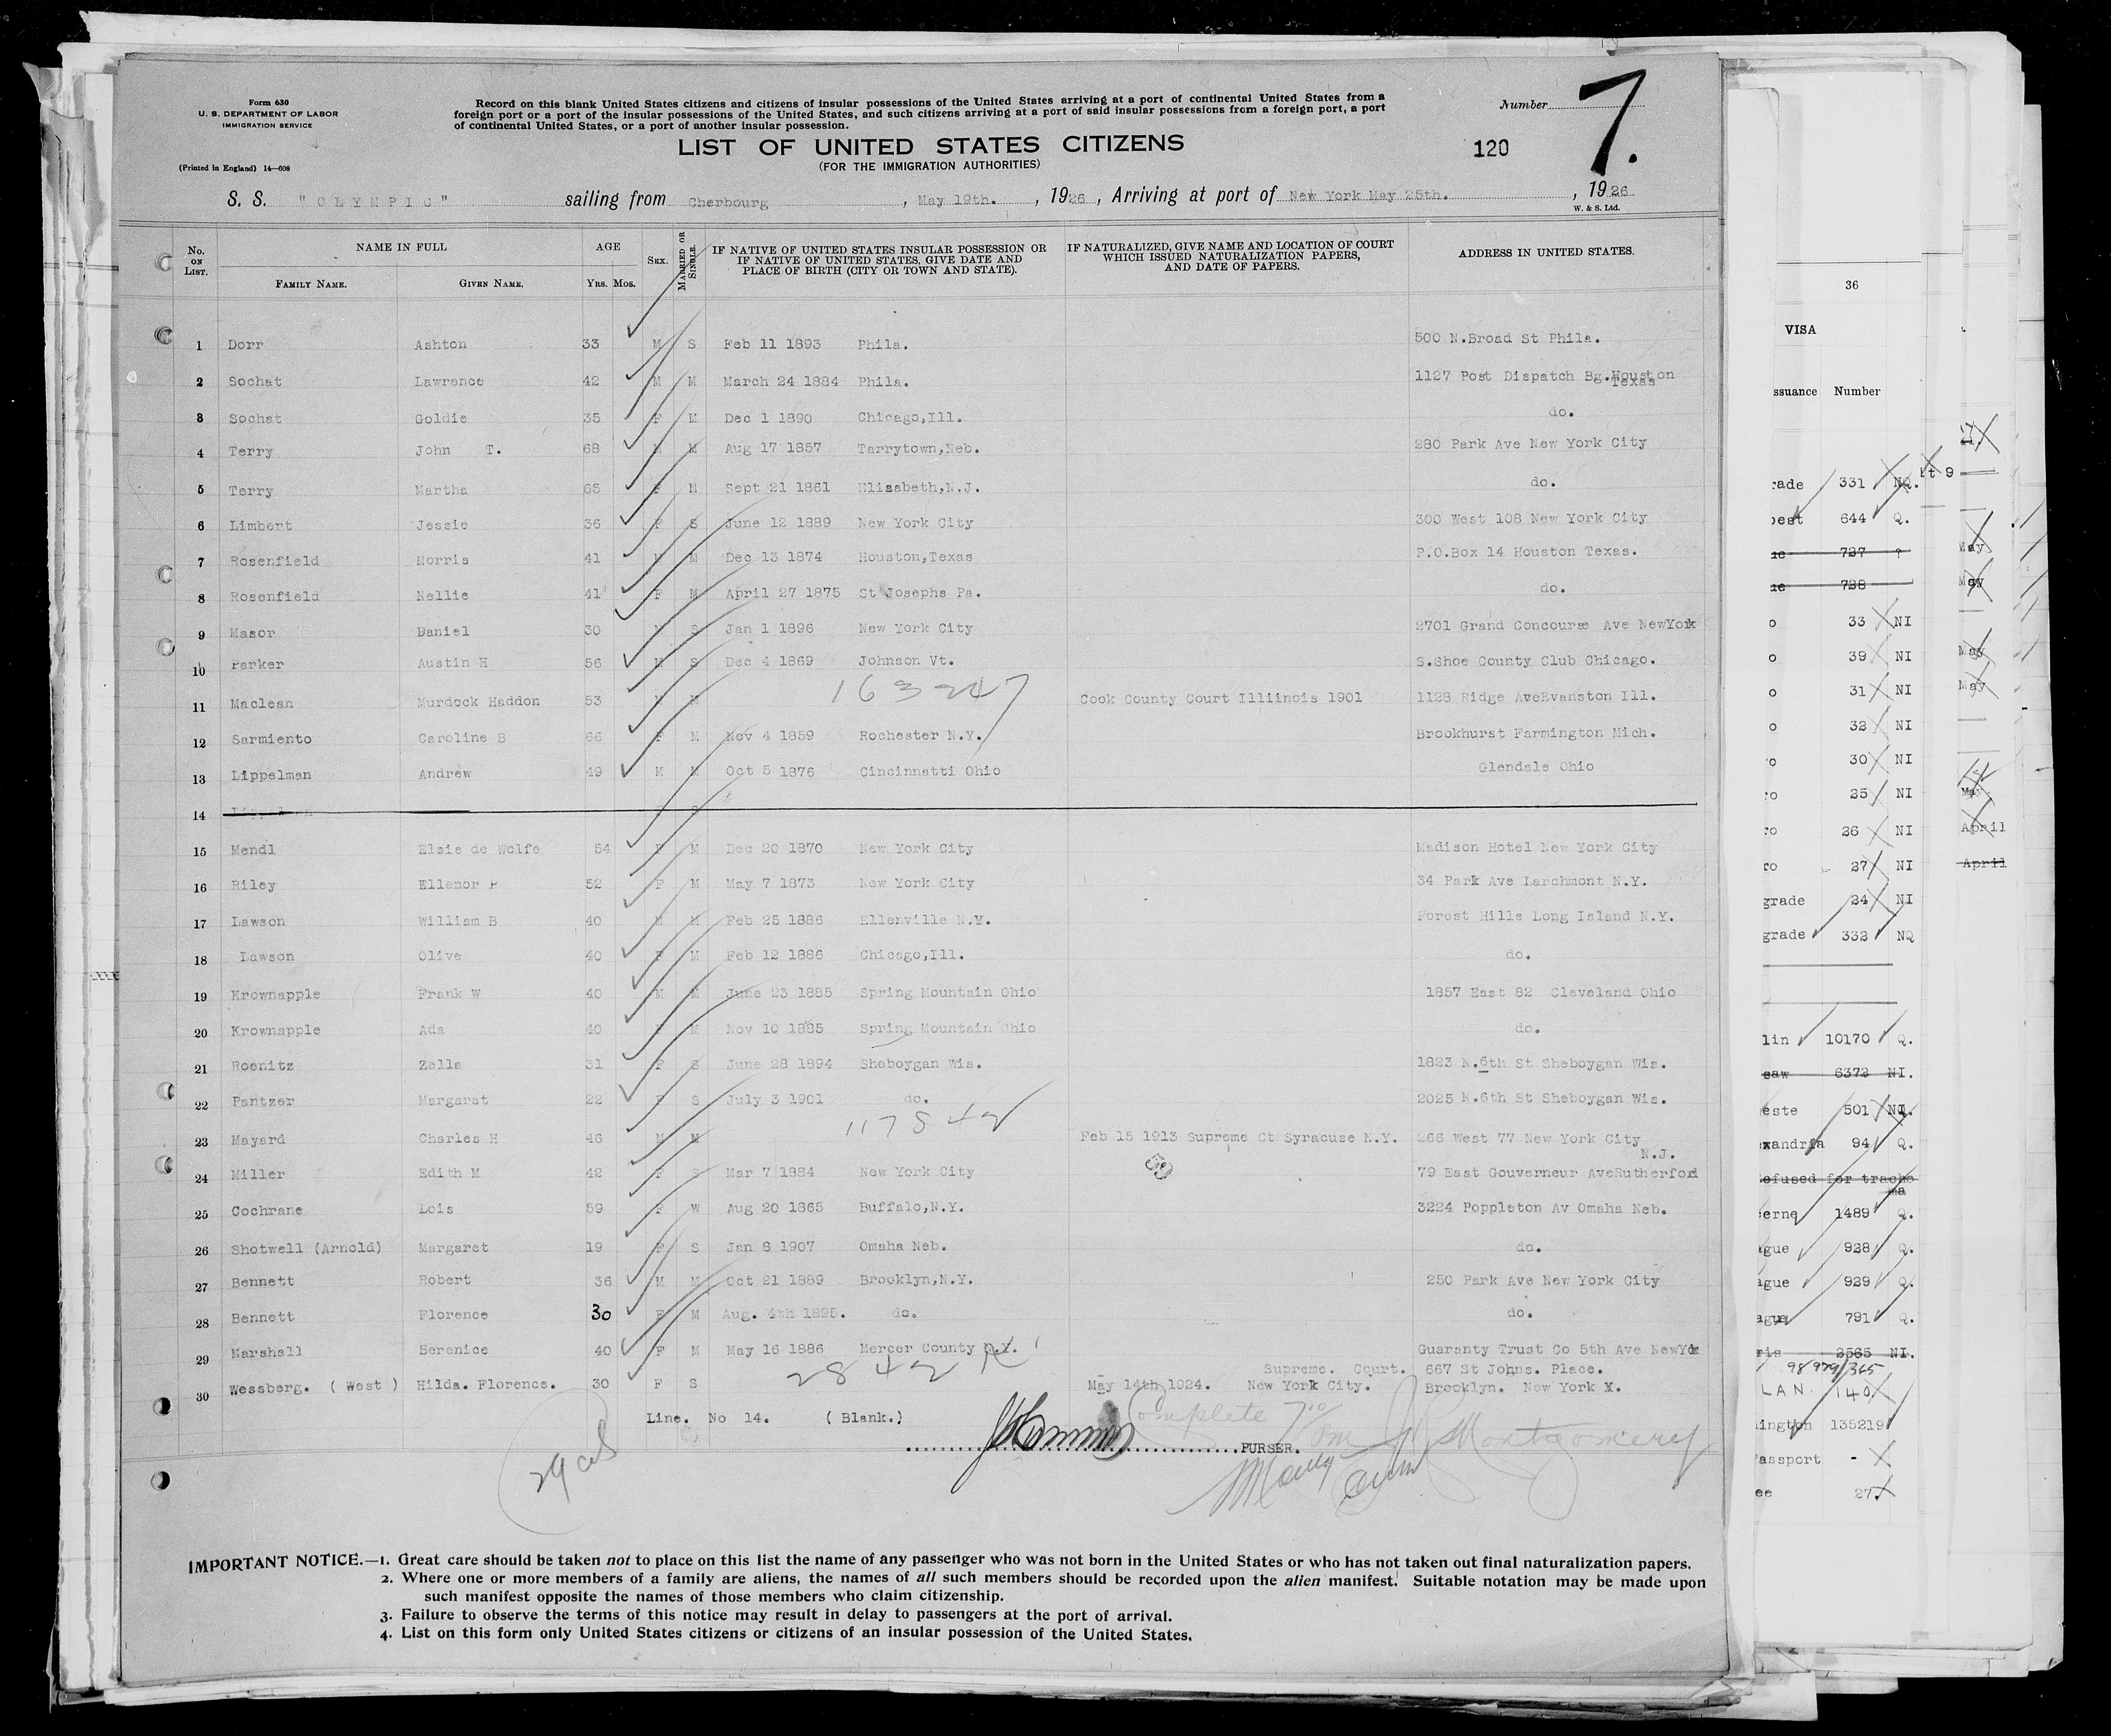 Form 630
U. S. DEPARTMENT OF LABOR
IMMIGRATION SERVICE
(Printed in England) 14—608
Record on this blank United States citizens and citizens of insular possessions of the United States arriving at a port of continental United States from a
foreign port or a port of the insular possessions of the United States, and such citizens arriving at a port of said insular possessions from a foreign port, a port
of continental United States, or a port of another insular possession.
Number 7.
LIST OF UNITED STATES CITIZENS
120
(FOR THE IMMIGRATION AUTHORITIES)
S. S. "OLYMPIC" sailing from Cherbourg, May 19th., 1926, Arriving at port of New York May 25th., 1926
W. & S. Ltd.
No. ON LIST. NAME IN FULL AGE SEX. MARRIED OR SINGLE. IF NATIVE OF UNITED STATES INSULAR POSSESSION OR IF NATIVE OF UNITED STATES, GIVE DATE AND PLACE OF BIRTH (CITY OR TOWN AND STATE). IF NATURALIZED, GIVE NAME AND LOCATION OF COURT WHICH ISSUED NATURALIZATION PAPERS, AND DATE OF PAPERS. ADDRESS IN UNITED STATES.
FAMILY NAME. GIVEN NAME. YRS. MOS.
1 Dorr Ashton 33 M S Feb 11 1893 Phila. 500 N.Broad St Phila.
2 Sochat Lawrence 42 M M March 24 1884 Phila. 1127 Post Dispatch Bg.Houston Texas
3 Sochat Goldie 35 F M Dec 1 1890 Chicago,Ill. do.
4 Terry John T. 68 M M Aug 17 1857 Tarrytown,Neb. 280 Park Ave New York City
5 Terry Martha 65 F M Sept 21 1861 Elizabeth,N.J. do.
6 Limbert Jessie 36 F S June 12 1889 New York City 300 West 108 New York City
7 Rosenfield Morris 41 M M Dec 13 1874 Houston,Texas P.O.Box 14 Houston Texas.
8 Rosenfield Nellie 41 F M April 27 1875 St Josephs Pa. do.
9 Masor Daniel 30 M S Jan 1 1896 New York City 2701 Grand Concourse Ave NewYork
10 Parker Austin H 56 M S Dec 4 1869 Johnson Vt. S.Shoe County Club Chicago.
11 Maclean Murdock Haddon 53 M M 163247 Cook County Court Illiinois 1901 1128 Ridge AveEvanston Ill.
12 Sarmiento Caroline B 66 F M Nov 4 1859 Rochester N.Y. Brookhurst Farmington Mich.
13 Lippelman Andrew 49 M M Oct 5 1876 Cincinnatti Ohio Glendale Ohio
14 Lippelman F S
15 Mendl Elsie de Wolfe 54 F M Dec 20 1870 New York City Madison Hotel New York City
16 Riley Ellenor P 52 F M May 7 1873 New York City 34 Park Ave Larchmont N.Y.
17 Lawson William B 40 M M Feb 25 1886 Ellenville N.Y. Forest Hills Long Island N.Y.
18 Lawson Olive 40 F M Feb 12 1886 Chicago,Ill. do.
19 Krownapple Frank W 40 M M June 23 1885 Spring Mountain Ohio 1857 East 82 Cleveland Ohio
20 Krownapple Ada 40 F M Nov 10 1885 Spring Mountain Ohio do.
21 Roenitz Zella 31 F S June 28 1894 Sheboygan Wis. 1823 N.6th St Sheboygan Wis.
22 Pantzer Margaret 22 F S July 3 1901 do. 2025 N.6th St Sheboygan Wis.
23 Mayard Charles H 46 M M 117542 Feb 15 1913 Supreme Ct Syracuse N.Y. 266 West 77 New York City
24 Miller Edith M 42 F S Mar 7 1884 New York City 79 East Gouverneur AveRutherford N.J.
25 Cochrane Lois 59 F W Aug 20 1865 Buffalo,N.Y. 3224 Poppleton Av Omaha Neb.
26 Shotwell (Arnold) Margaret 19 F S Jan 8 1907 Omaha Neb. do.
27 Bennett Robert 36 M M Oct 21 1889 Brooklyn,N.Y. 250 Park Ave New York City
28 Bennett Florence 30 F M Aug. 4th 1895. do. do.
29 Marshall Berenice 40 F M May 16 1886 Mercer County Guaranty Trust Co 5th Ave NewYok
30 Wessberg. ( West ) Hilda. Florence. 30 F S 2842 May 14th 1924. Supreme. Court. New York City. 667 St Johns. Place. Brooklyn. New York
Line. No 14. ( Blank.)
Complete
PURSER.
Montgomery
IMPORTANT NOTICE.—1. Great care should be taken not to place on this list the name of any passenger who was not born in the United States or who has not taken out final naturalization papers.
2. Where one or more members of a family are aliens, the names of all such members should be recorded upon the alien manifest. Suitable notation may be made upon
such manifest opposite the names of those members who claim citizenship.
3. Failure to observe the terms of this notice may result in delay to passengers at the port of arrival.
4. List on this form only United States citizens or citizens of an insular possession of the United States.
36
VISA
ssuance Number
rade 331 NQ.
pest 644 Q.
ue 727
ue 728
o 33 NI
o 39 NI
o 31 NI
o 32 NI
o 30 NI
ro 25 NI
ro 26 NI
ro 27 NI
grade 24 NI
grade 332 NQ
lin 10170 Q.
saw 6372 NI.
este 501 NQ.
xandria 94 Q.
efused for tracho
ma
erne 1489 Q.
ague 928 Q.
ague 929 Q.
ague 791 Q.
ris 2565 NI.
98979/365
LAN. 140
ington 135219
assport -
ee 27
May
May
May
May
May
April
April